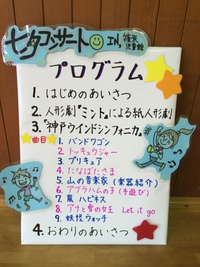 七夕コンサート IN
児童館
プログラム
1. はじめのあいさつ
2. 人形劇『ミント』による紙人形劇
3. "神戸ウインドシンフォニカ"
曲目
1. バンドワゴン
2. トッキュウジャー
3. プリキュア
4. たなばたさま
5. 山の音楽家(楽器紹介)
6. アブラハムの子(手遊び)
7. 嵐 ハピネス
8. アナと雪の女王 Let it go
9. 妖怪ウォッチ
4. おわりのあいさつ